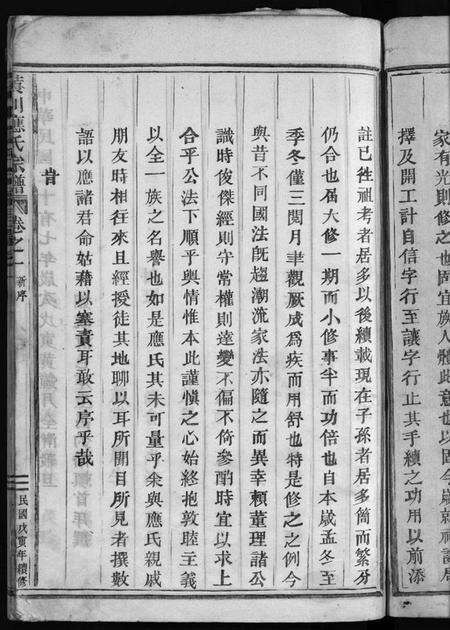 家有光則修之也固宜族人體此意也以固今歲就祠設局
擇及開工計自信字行至讓字行止其手續之功用以前添
註已往祖考者居多以後續載現在子孫者居多簡而繁分
仍合也屆大修一期而小修事半而功倍也自本歲孟冬至
季冬僅三閱月聿觀厥成為疾而用舒也特是修之之例今
與昔不同國法旣趨潮流家法亦隨之而異幸賴董理諸公
識時俊傑經則守常權則達變不偏不倚參酌時宜以求上
合乎公法下順乎輿情惟本此謹愼之心始終抱敦睦主義
以全一族之名譽也如是應氏其未可量乎余與應氏親戚
朋友時相往來且經授徒其地聊以耳所聞目所見者撰數
語以應諸君命姑藉以塞責耳敢云序乎哉
旹
中華民國二十有七年歲次戊寅黃鐘月
應氏宗譜
卷之一
新序
民國戊寅年續修